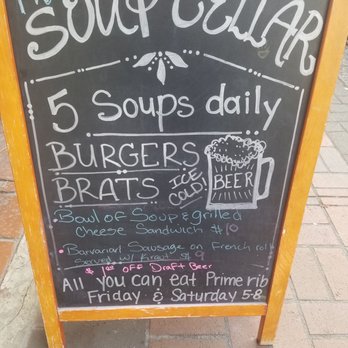 The
SOUP CELLAR
5 Soups daily
BURGERS
BRATS
ICE
COLD!
BEER
Bowl of Soup & grilled
Cheese Sandwich $10
Barvarian Sausage on French roll
Served w/ Kraut $9
$1.00 OFF Draft Beer
All you can eat Prime rib
Friday & Saturday 5-8